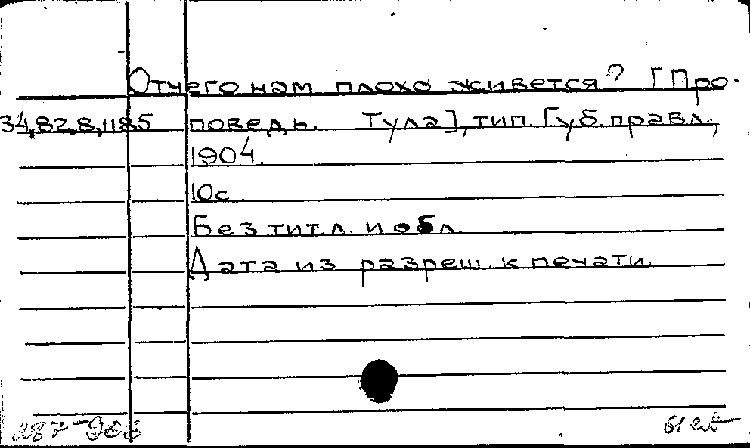 Отчего нам плохо живется? [Про-
34.82.8.1185 поведь. Тула], тип. Губ. правл.,
1904.
10с.
Без тит. л. и обл.
Дата из разреш. к печати.